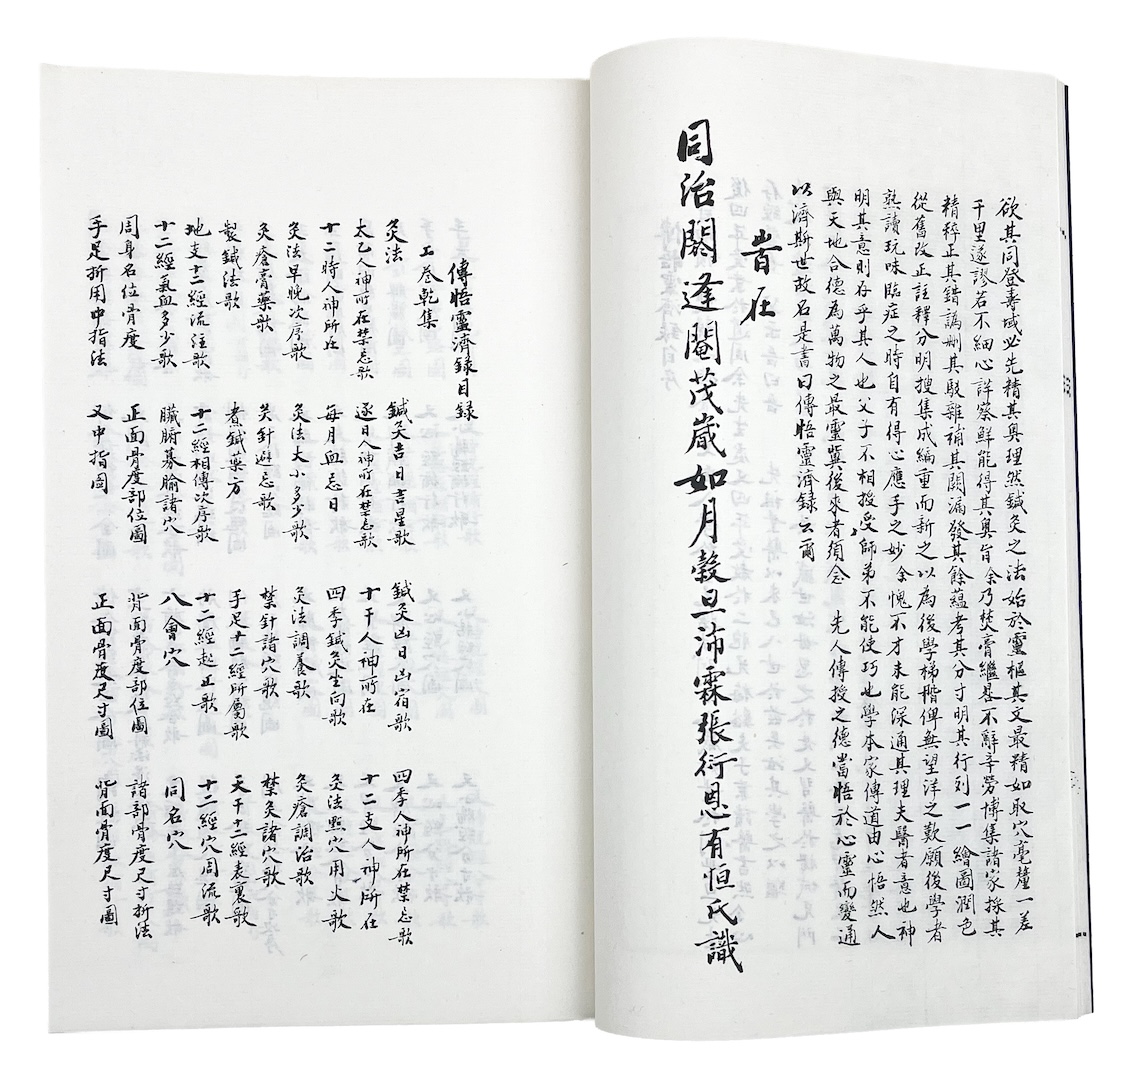 欲其同登壽域必先精其奧理然鍼灸之法始於靈樞其文最精如取穴毫釐一差
千里遂謬若不細心詳察鮮能得其奧旨余乃焚膏繼晷不辭辛勞博集諸家採其
精粹正其錯譌刪其駁雜補其闕漏發其餘蘊考其分寸明其行列一一繪圖潤色
從舊改正註釋分明搜集成編重而新之以為後學梯楷俾無望洋之歎願後學者
熟讀玩味臨症之時自有得心應手之妙余愧不才未能深通其理夫醫者意也神
明其意則存乎其人也父子不相授受師弟不能使巧也學本家傳道由心悟然人
與天地合德為萬物之最靈冀後來者須念 先人傳授之德當悟於心靈而變通
以濟斯世故名是書曰傳悟靈濟錄云爾
旹在
同治閼逢閹茂歲如月穀旦沛霖張衍恩有恒氏識
傳悟靈濟錄目錄
上卷乾集
灸法 鍼灸吉日吉星歌 鍼灸凶日凶宿歌 四季人神所在禁忌歌
太乙人神所在禁忌歌 逐日人神所在禁忌歌 十干人神所在 十二支人神所在
十二時人神所在 每月血忌日 四季鍼灸坐向歌 灸法點穴用火歌
灸法早晚次序歌 灸法大小多少歌 灸法調養歌 灸瘡調治歌
灸瘡膏藥歌 灸針避忌歌 禁針諸穴歌 禁灸諸穴歌
製鍼法歌 煮鍼藥方 手足十二經所屬歌 天干十二經表裏歌
地支十二經流注歌 十二經相傳次序歌 十二經起止歌 十二經穴周流歌
十二經氣血多少歌 臟腑募腧諸穴 八會穴 同名穴
周身名位骨度 正面骨度部位圖 背面骨度部位圖 諸部骨度尺寸折法
手足折用中指法 又中指圖 正面骨度尺寸圖 背面骨度尺寸圖